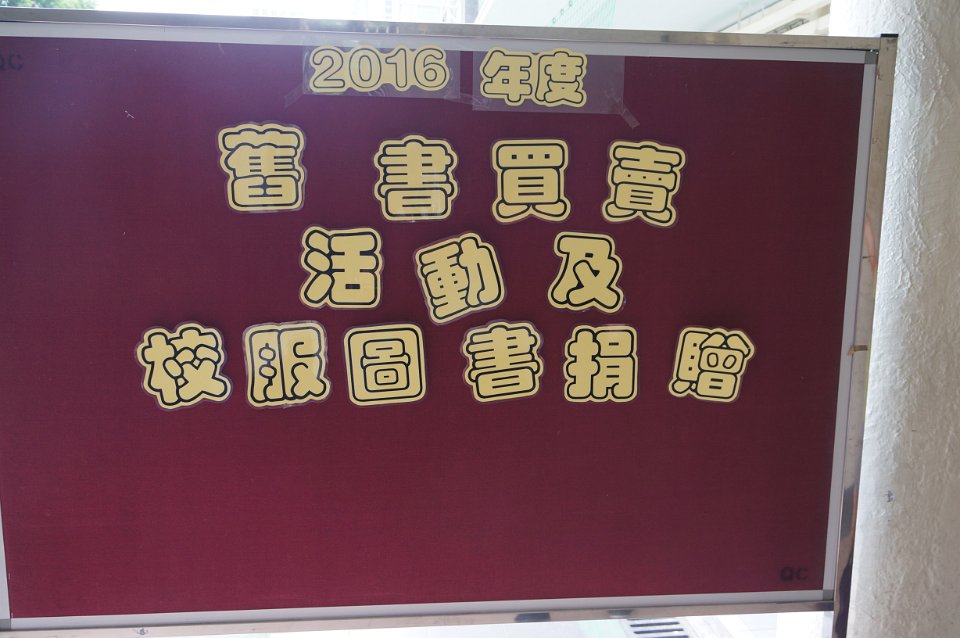 2016 年度
舊書買賣
活動及
校服圖書捐贈
QC
QC